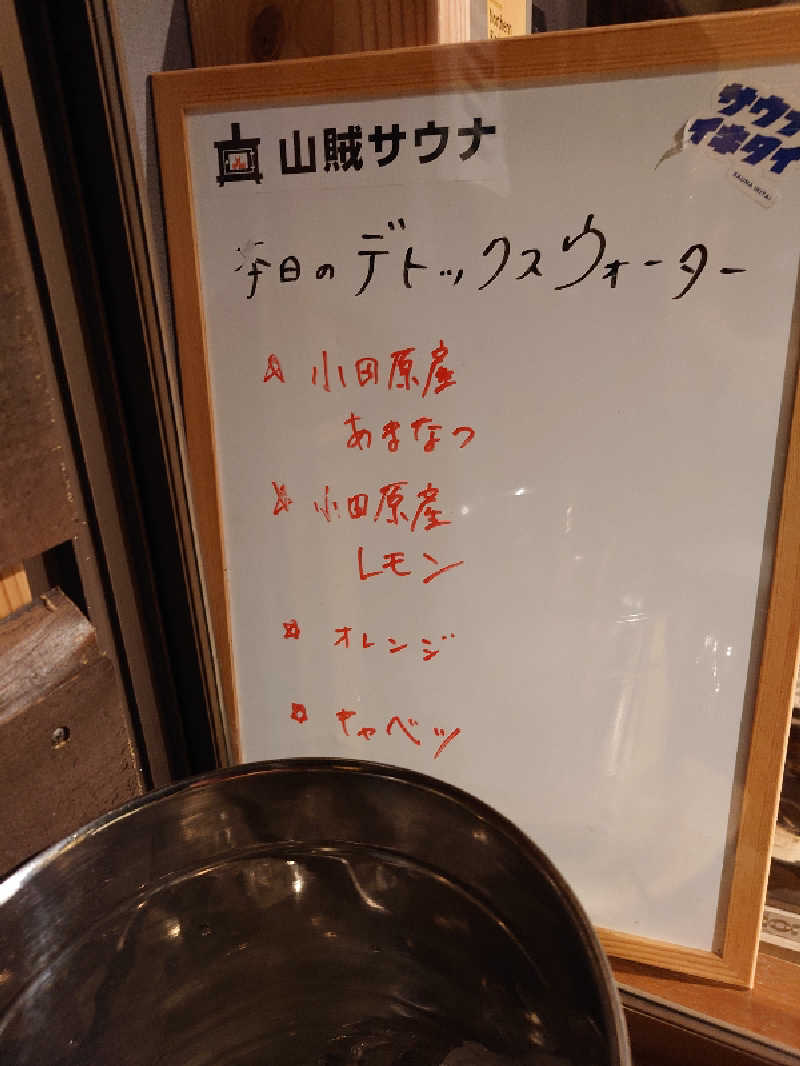 山賊サウナ
サウナ
イキタイ
SAUNA IKITAI
本日のデトックスウォーター
☆ 小田原産
あまなつ
☆ 小田原産
レモン
☆ オレンジ
☆ キャベツ